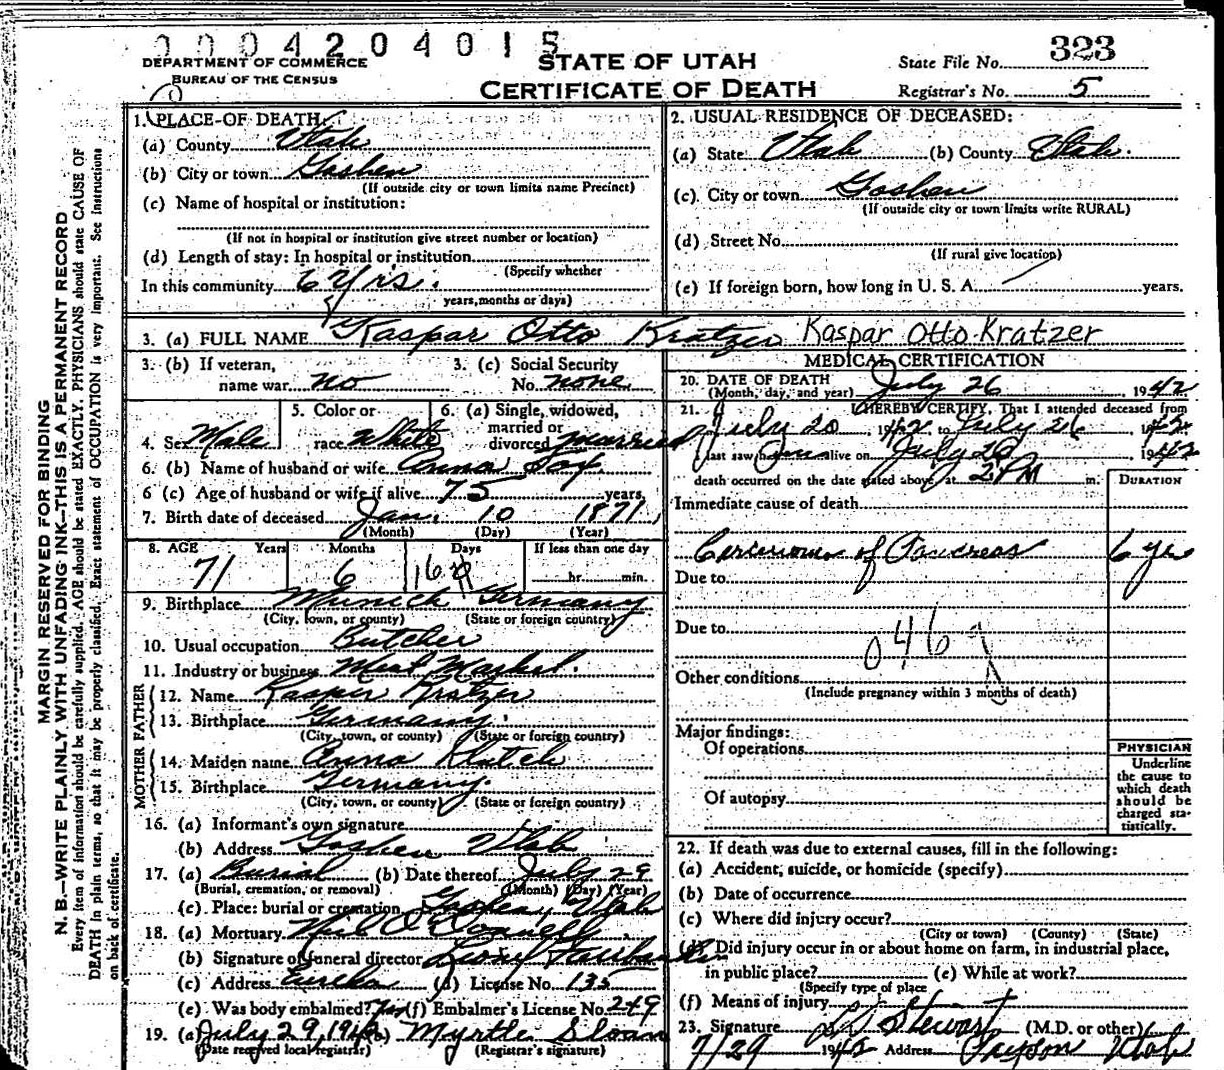 0004204015
DEPARTMENT OF COMMERCE
BUREAU OF THE CENSUS
STATE OF UTAH
CERTIFICATE OF DEATH
State File No. 323
Registrar's No. 5
MARGIN RESERVED FOR BINDING
N. B.—WRITE PLAINLY WITH UNFADING INK—THIS IS A PERMANENT RECORD
Every item of information should be carefully supplied. AGE should be stated EXACTLY. PHYSICIANS should state CAUSE OF
DEATH in plain terms, so that it may be properly classified. Exact statement of OCCUPATION is very important. See instructions
on back of certificate.
1. PLACE OF DEATH:
(a) County Utah
(b) City or town Goshen
(If outside city or town limits name Precinct)
(c) Name of hospital or institution:
(If not in hospital or institution give street number or location)
(d) Length of stay: In hospital or institution
(Specify whether
In this community 6 yrs.
years, months or days)
2. USUAL RESIDENCE OF DECEASED:
(a) State Utah (b) County Utah.
(c) City or town Goshen
(If outside city or town limits write RURAL)
(d) Street No.
(If rural give location)
(e) If foreign born, how long in U. S. A. years.
3. (a) FULL NAME Kaspar Otto Kratzer Kaspar Otto Kratzer
3. (b) If veteran,
name war no
3. (c) Social Security
No. none
4. Sex Male
5. Color or
race White
6. (a) Single, widowed,
married or
divorced married
6. (b) Name of husband or wife Anna Fox
6 (c) Age of husband or wife if alive 75 years
7. Birth date of deceased Jan. 10 1871
(Month) (Day) (Year)
8. AGE Years Months Days If less than one day
71 6 16 hr. min.
9. Birthplace Munich Germany
(City, town, or county) (State or foreign country)
10. Usual occupation Butcher
11. Industry or business Meat Market.
FATHER
12. Name Kasper Kratzer
13. Birthplace Germany.
(City, town, or county) (State or foreign country)
MOTHER
14. Maiden name Anna
15. Birthplace Germany.
(City, town, or county) (State or foreign country)
16. (a) Informant's own signature
(b) Address Goshen Utah
17. (a) Burial (b) Date thereof July 29
(Burial, cremation, or removal) (Month) (Day) (Year)
(c) Place: burial or cremation Goshen, Utah
18. (a) Mortuary Neil O'Donnell
(b) Signature of funeral director
(c) Address Eureka (d) License No. 135
(e) Was body embalmed? Yes (f) Embalmer's License No. 249
19. (a) July 29, 1942 (b) Myrtle Sloan
(Date received local registrar) (Registrar's signature)
MEDICAL CERTIFICATION
20. DATE OF DEATH
(Month, day, and year) July 26, 1942
21. I HEREBY CERTIFY, That I attended deceased from
July 20, 1942 to July 26, 1942
last saw h alive on July 26 1942
death occurred on the date stated above, at 2 PM m.
DURATION
Immediate cause of death
Carcinoma of Pancreas 6 yrs
Due to
Due to
046
Other conditions
(Include pregnancy within 3 months of death)
Major findings:
Of operations
Of autopsy
PHYSICIAN
Underline
the cause to
which death
should be
charged sta-
tistically.
22. If death was due to external causes, fill in the following:
(a) Accident, suicide, or homicide (specify)
(b) Date of occurrence
(c) Where did injury occur?
(City or town) (County) (State)
(d) Did injury occur in or about home on farm, in industrial place,
in public place? (e) While at work?
(Specify type of place
(f) Means of injury
23. Signature Stewart (M.D. or other)
7/29 1942 Address Payson Utah